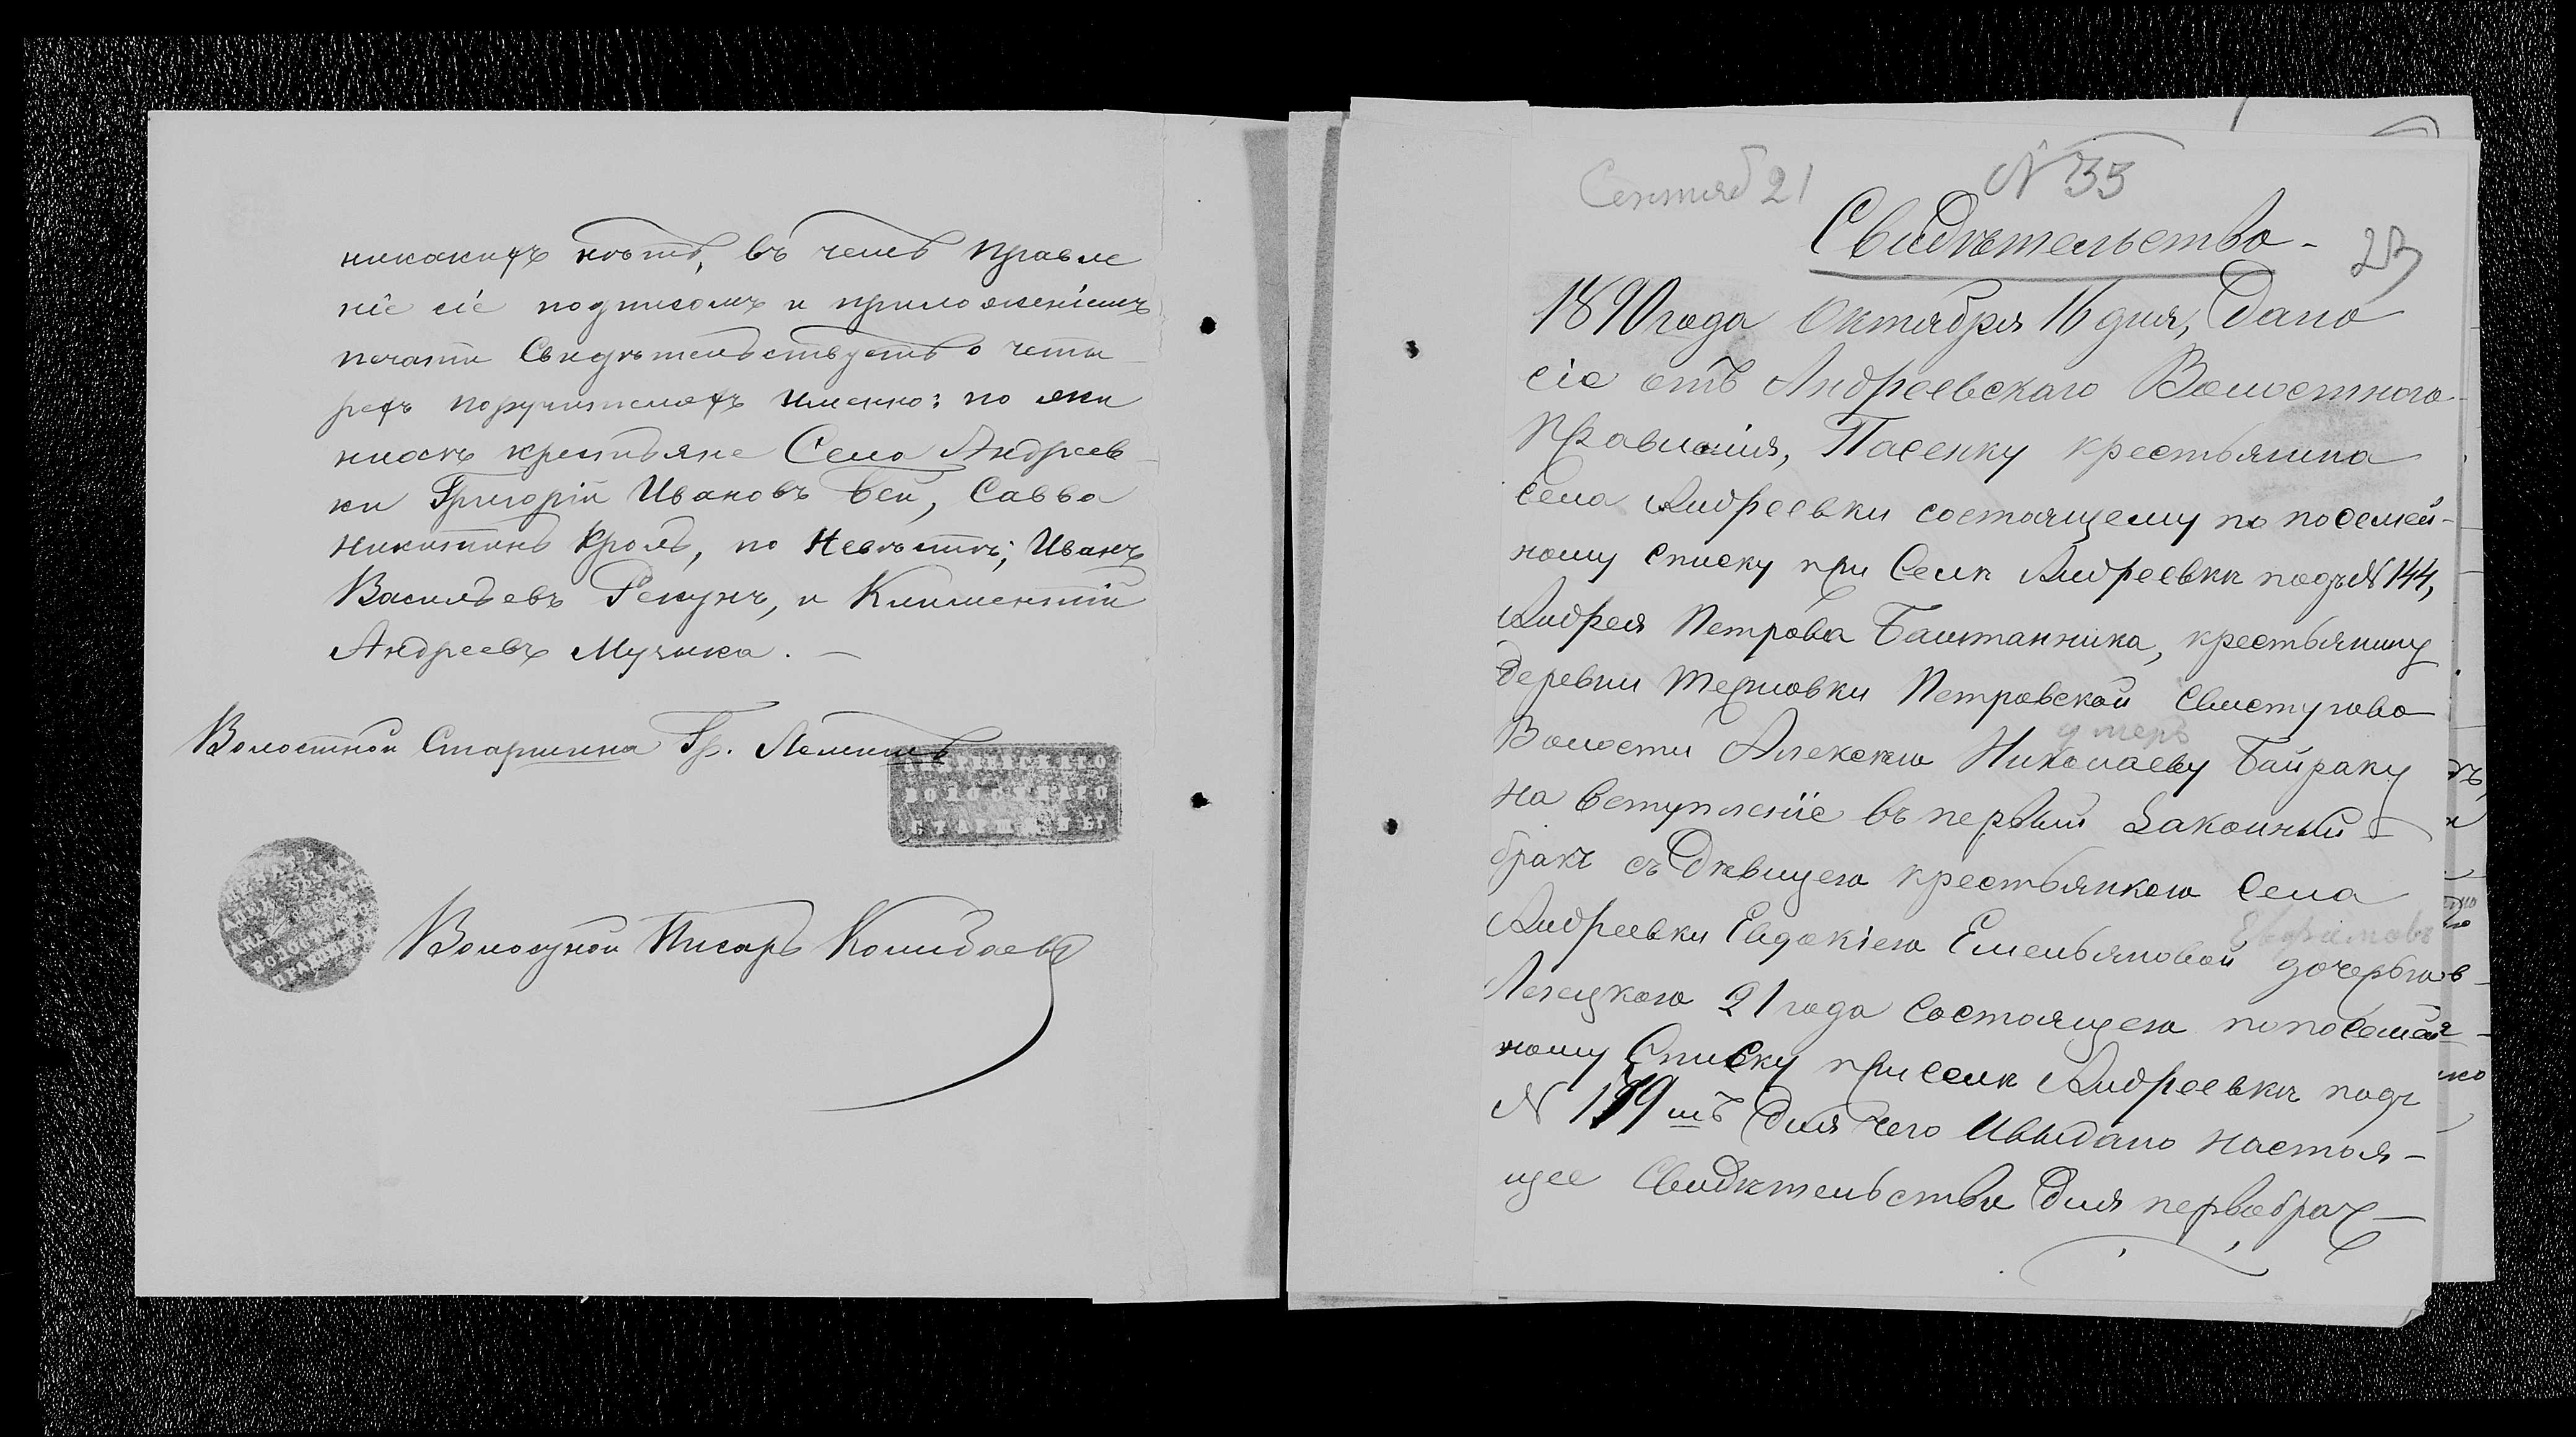 никакихъ нѣтъ, въ чемъ правле
ніе сіе подписомъ и приложеніемъ
печати Свидѣтельствуетъ о четы
рехъ поручителяхъ именно: по же
ниость крестьяне Села Андреев
ки Григорій Ивановъ Бей, Савва
Никитинъ Кроль, по Невѣстѣ; Иванъ
Васильевъ Рекунъ, и Климентій
Андреевъ Музыка. —
Волостной Старшина Гр.
ВОЛОСТНАГО
Волостной Писарь
Сентяб 21
N 35
Свидѣтельство -
1890 года Октября 16 дня, Дано
сіе отъ Андреевскаго Волостного
Правленія, Пасенку крестьянина
Села Андреевки состоящему по посемей-
ному списку при Селѣ Андреевкѣ подъ N 144,
Андрея Петрова Баштанника, крестьянину
деревни Терновки Петровской Свистуново
умеръ
Волости Алексѣю Николаеву Байраку
на вступленіе въ первый Законный
бракъ съ Дѣвицею крестьянкою Села
Андреевки Евдокіею Емельяновой дочерью
21 года Состоящею по посемей-
ному Списку при селѣ Андреевкѣ подъ
N 179 мъ Для чего Ивыдано настоя-
щее Свидѣтельство Для первобрач-